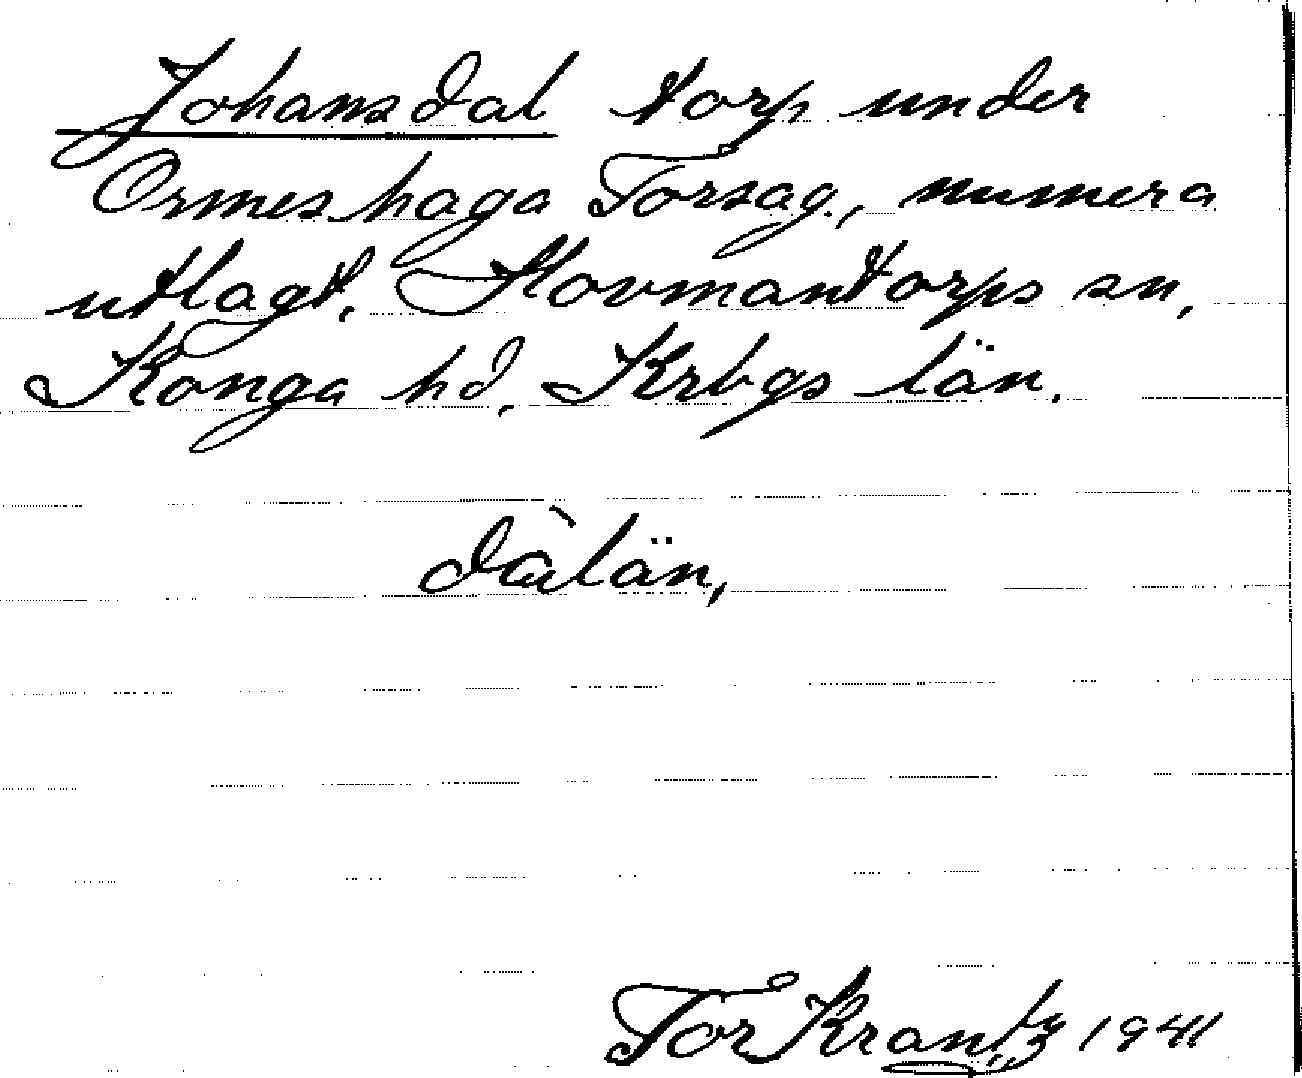 Johansdal torp under
Ormeshaga Torsag., numera
utlagt, Hovmantorps sn,
Konga hd, Krbgs län.
dàlän,
Tor Krantz 1941